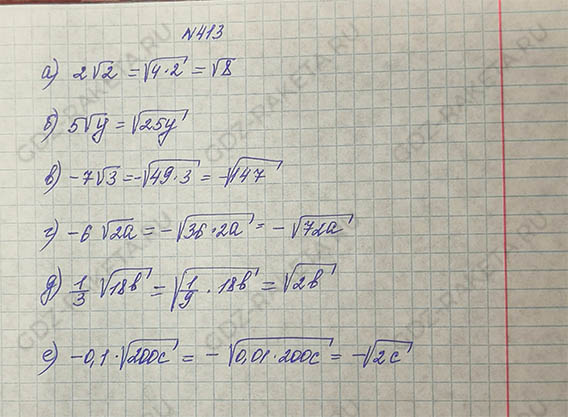 №413
а) 2√2 = √4·2 = √8
б) 5√y = √25y
в) -7√3 = -√49·3 = -√147
г) -6√2a = -√36·2a = -√72a
д) 1/3 √18b = √1/9·18b = √2b
е) -0,1·√200c = -√0,01·200c = -√2c
GDZ-RAKETA.RU
GDZ-RAKETA.RU
GDZ-RAKETA.RU
GDZ-RAKETA.RU